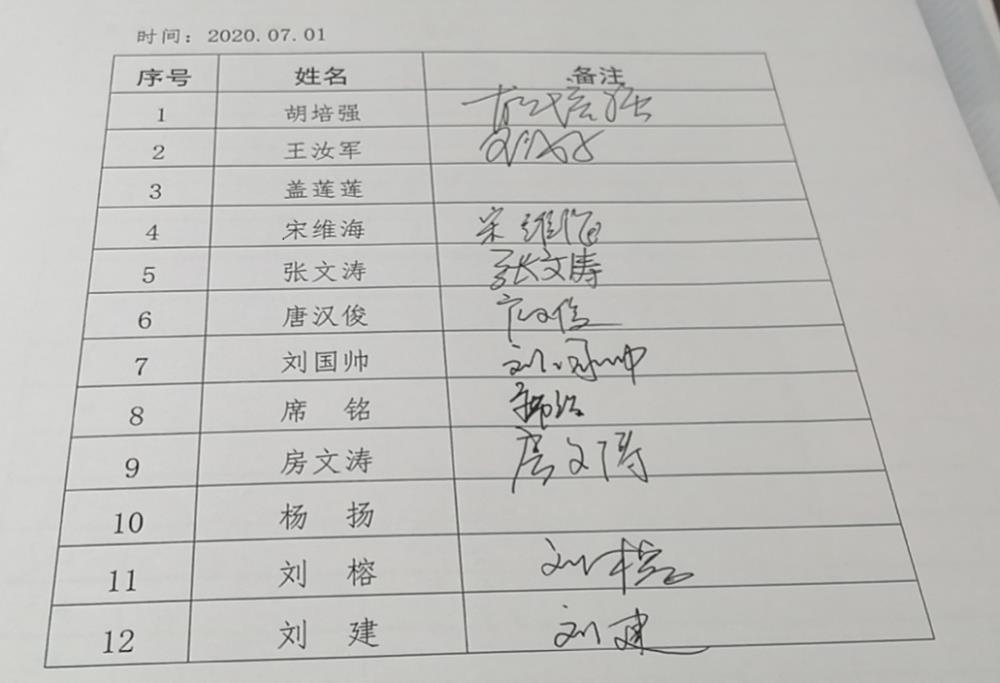 时间：2020.07.01
序号 姓名 备注
1 胡培强 胡培强
2 王汝军
3 盖莲莲
4 宋维海 宋维海
5 张文涛 张文涛
6 唐汉俊
7 刘国帅 刘国帅
8 席 铭 席铭
9 房文涛 房文涛
10 杨 扬
11 刘 榕 刘榕
12 刘 建 刘建